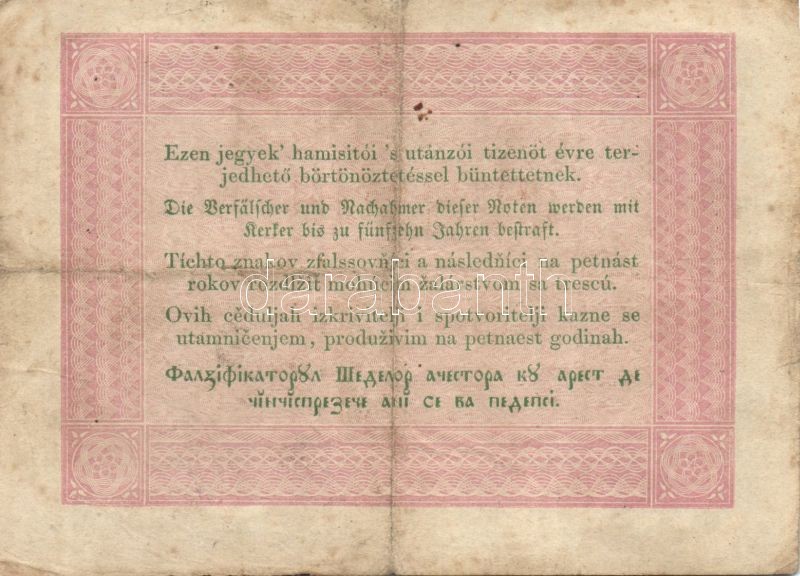 Ezen jegyek' hamisitói 's utánzói tizenöt évre ter-
jedhető börtönöztetéssel büntettetnek.
Die Verfälscher und Nachahmer dieser Noten werden mit
Kerker bis zu fünfzehn Jahren bestraft.
Tíchto znakov zfalssovňjci a následňíci na petnást
rokov rozdlžit mohúcim žalárstvom sa trescú.
Ovih cĕduljah izkrivitelji i spotvoritelji kazne se
utamničenjem, produživim na petnaest godinah.
Фалꙁіфікаторꙋл Шеделор ачестора кꙋ арест де
чінчіспреꙁече ані се ва педепсі.
darabanth